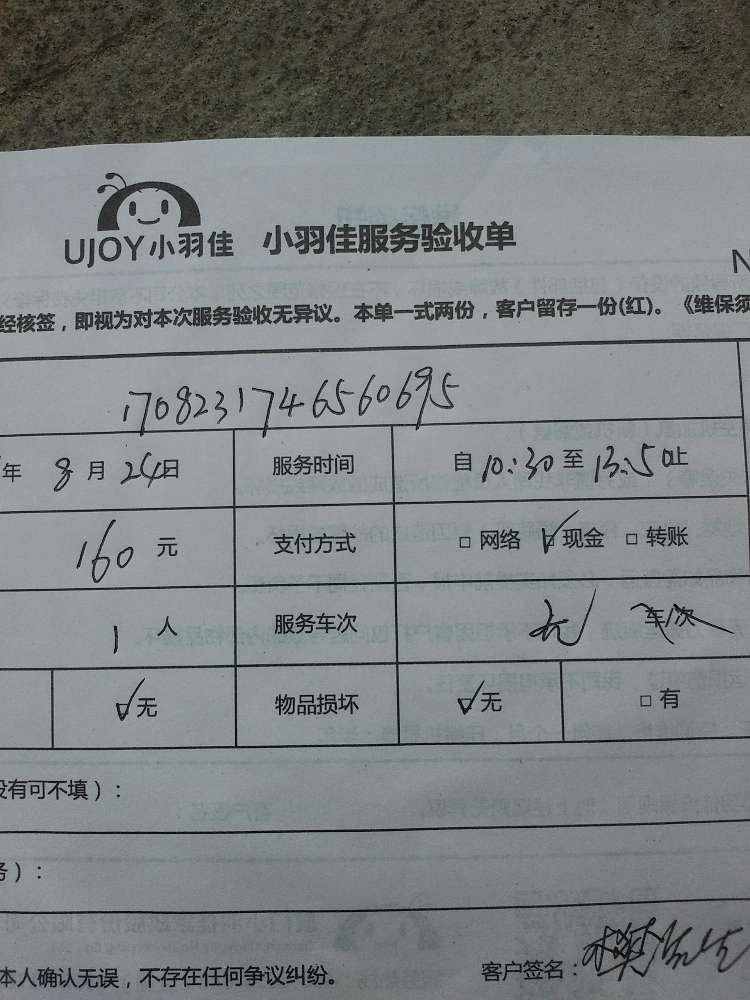 UJOY小羽佳 小羽佳服务验收单
N
经核签，即视为对本次服务验收无异议。本单一式两份，客户留存一份(红)。《维保须
1708231746560695
年 8 月 24 日 服务时间 自 10:30 至 13:50 止
160 元 支付方式 □ 网络 ☑ 现金 □ 转账
1 人 服务车次 无 车/次
☑ 无 物品损坏 ☑ 无 □ 有
没有可不填）：
务）：
本人确认无误，不存在任何争议纠纷。 客户签名：